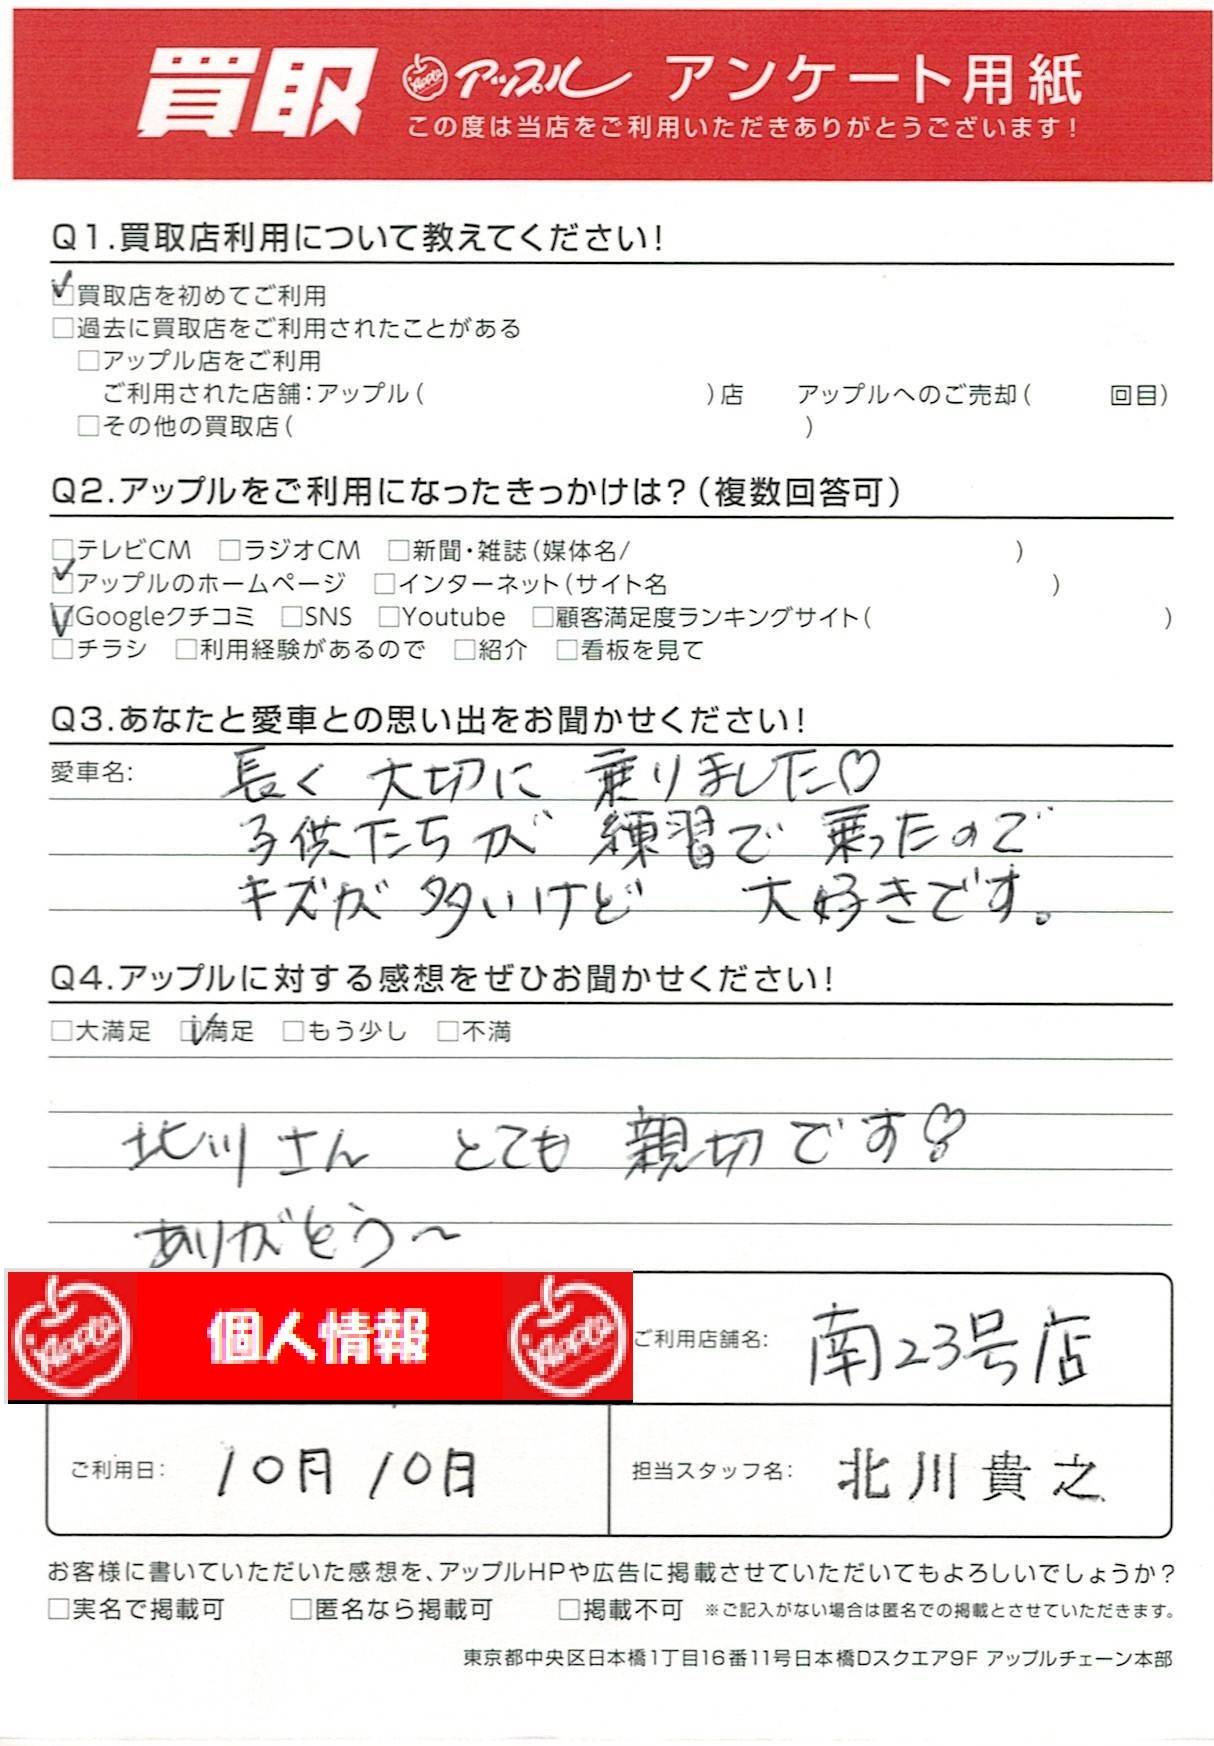 買取 アップル アンケート用紙
この度は当店をご利用いただきありがとうございます!
Q1.買取店利用について教えてください!
☑買取店を初めてご利用
□過去に買取店をご利用されたことがある
□アップル店をご利用
ご利用された店舗:アップル( )店 アップルへのご売却( 回目)
□その他の買取店( )
Q2.アップルをご利用になったきっかけは?(複数回答可)
□テレビCM □ラジオCM □新聞・雑誌(媒体名/ )
☑アップルのホームページ □インターネット(サイト名 )
☑Googleクチコミ □SNS □Youtube □顧客満足度ランキングサイト( )
□チラシ □利用経験があるので □紹介 □看板を見て
Q3.あなたと愛車との思い出をお聞かせください!
愛車名: 長く 大切に 乗りました♡
子供たちが 練習で 乗ったので
キズが 多いけど 大好きです。
Q4.アップルに対する感想をぜひお聞かせください!
□大満足 ☑満足 □もう少し □不満
北川さん とても 親切です♡
ありがとう〜
Apple 個人情報 Apple ご利用店舗名: 南23号店
ご利用日: 10月10日 担当スタッフ名: 北川貴之
お客様に書いていただいた感想を、アップルHPや広告に掲載させていただいてもよろしいでしょうか?
□実名で掲載可 □匿名なら掲載可 □掲載不可 ※ご記入がない場合は匿名での掲載とさせていただきます。
東京都中央区日本橋1丁目16番11号日本橋Dスクエア9F アップルチェーン本部